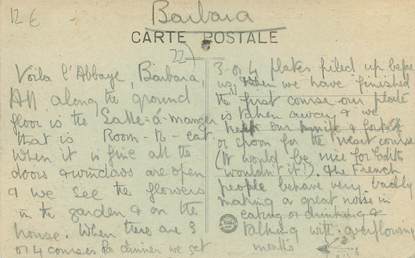 12 €
Barbara
CARTE POSTALE
22
Voila l'Abbaye, Barbara
All along the ground
floor is the Salle-à-manger
that is Room-to-eat.
When it is fine all the
doors & windows are open
& we see the flowers
in the garden & on the
house. When there are 3
or 4 courses for dinner we get
3 or 4 plates piled up before
us; when we have finished
the first course our plate
is taken away & we
our knife & fork
or spoon for the next course
(It would be nice for Edith
wouldn't it). The French
people behave very badly
making a great noise in
eating or drinking &
talking with overflowing
mouths